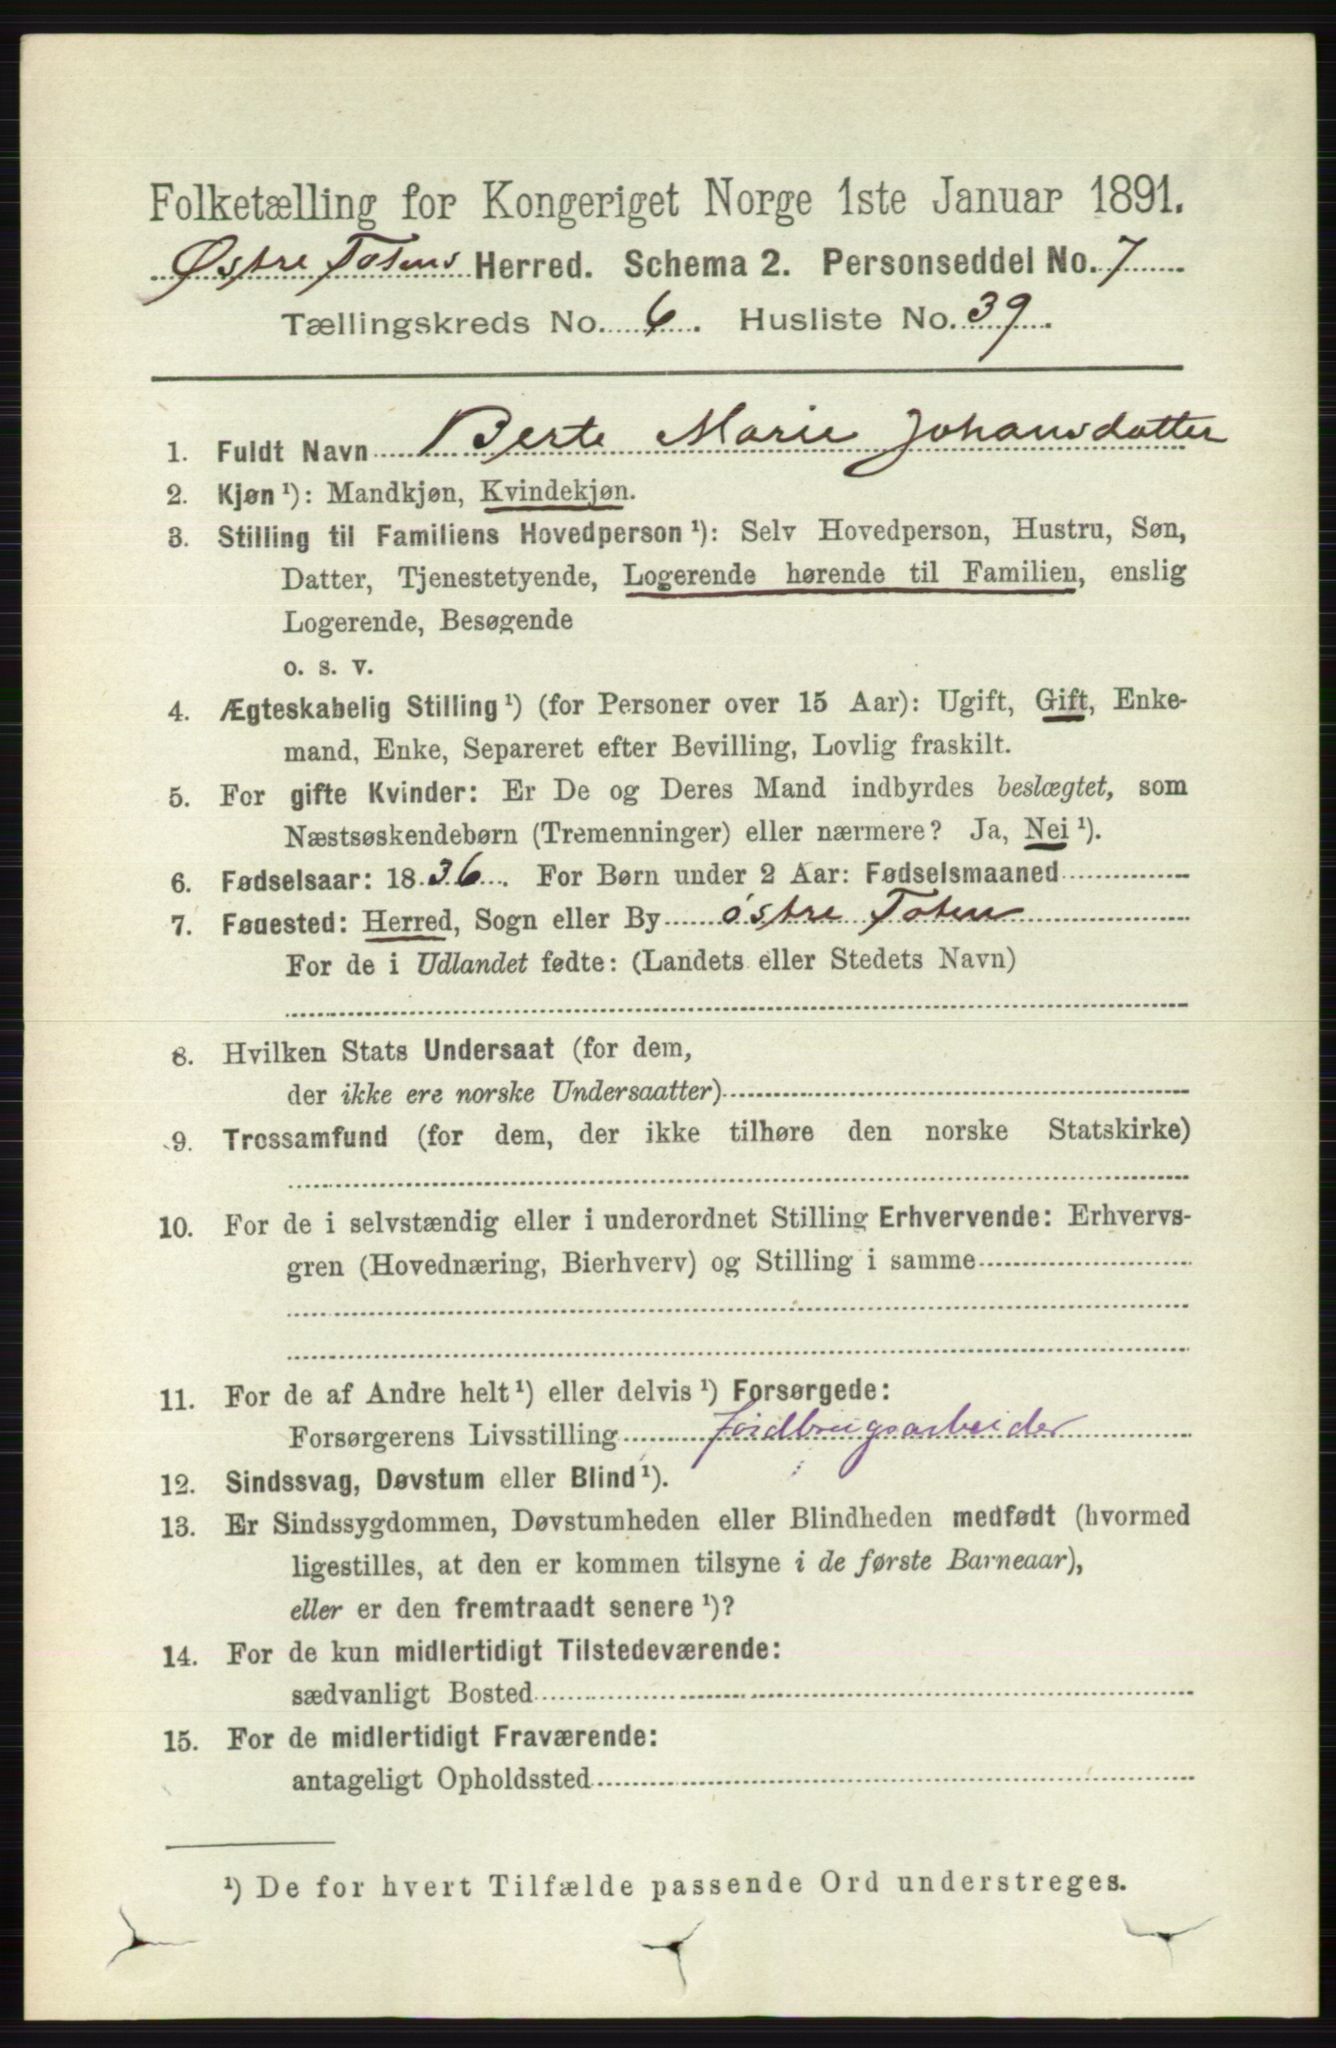 Folketælling for Kongeriget Norge 1ste Januar 1891.
Østre Totens Herred. Schema 2. Personseddel No. 7
Tællingskreds No. 6. Husliste No. 39.
1. Fuldt Navn Berte Marie Johansdatter
2. Kjøn ¹): Mandkjøn, Kvindekjøn.
3. Stilling til Familiens Hovedperson ¹): Selv Hovedperson, Hustru, Søn,
Datter, Tjenestetyende, Logerende hørende til Familien, enslig
Logerende, Besøgende
o. s. v.
4. Ægteskabelig Stilling ¹) (for Personer over 15 Aar): Ugift, Gift, Enke-
mand, Enke, Separeret efter Bevilling, Lovlig fraskilt.
5. For gifte Kvinder: Er De og Deres Mand indbyrdes beslægtet, som
Næstsøskendebørn (Tremenninger) eller nærmere? Ja, Nei ¹).
6. Fødselsaar: 1836. For Børn under 2 Aar: Fødselsmaaned
7. Fødested: Herred, Sogn eller By østre Toten
For de i Udlandet fødte: (Landets eller Stedets Navn)
8. Hvilken Stats Undersaat (for dem,
der ikke ere norske Undersaatter)
9. Trossamfund (for dem, der ikke tilhøre den norske Statskirke)
10. For de i selvstændig eller i underordnet Stilling Erhvervende: Erhvervs-
gren (Hovednæring, Bierhverv) og Stilling i samme
11. For de af Andre helt ¹) eller delvis ¹) Forsørgede:
Forsørgerens Livsstilling Jordbrugsarbeider
12. Sindssvag, Døvstum eller Blind ¹).
13. Er Sindssygdommen, Døvstumheden eller Blindheden medfødt (hvormed
ligestilles, at den er kommen tilsyne i de første Barneaar),
eller er den fremtraadt senere ¹)?
14. For de kun midlertidigt Tilstedeværende:
sædvanligt Bosted
15. For de midlertidigt Fraværende:
antageligt Opholdssted
¹) De for hvert Tilfælde passende Ord understreges.